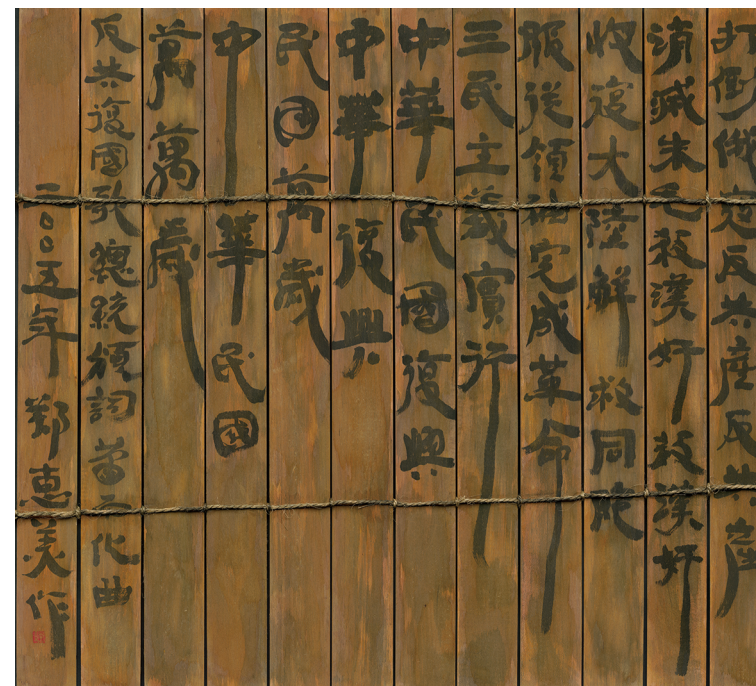 打倒俄寇反共產反共產
消滅朱毛殺漢奸殺漢奸
收復大陸解救同胞
服從領袖完成革命
三民主義實行
中華民國復興
中華復興
民國萬歲
中華民國
萬萬歲
反共復國歌總統頒詞蕭而化曲
二〇〇五年鄭惠美作